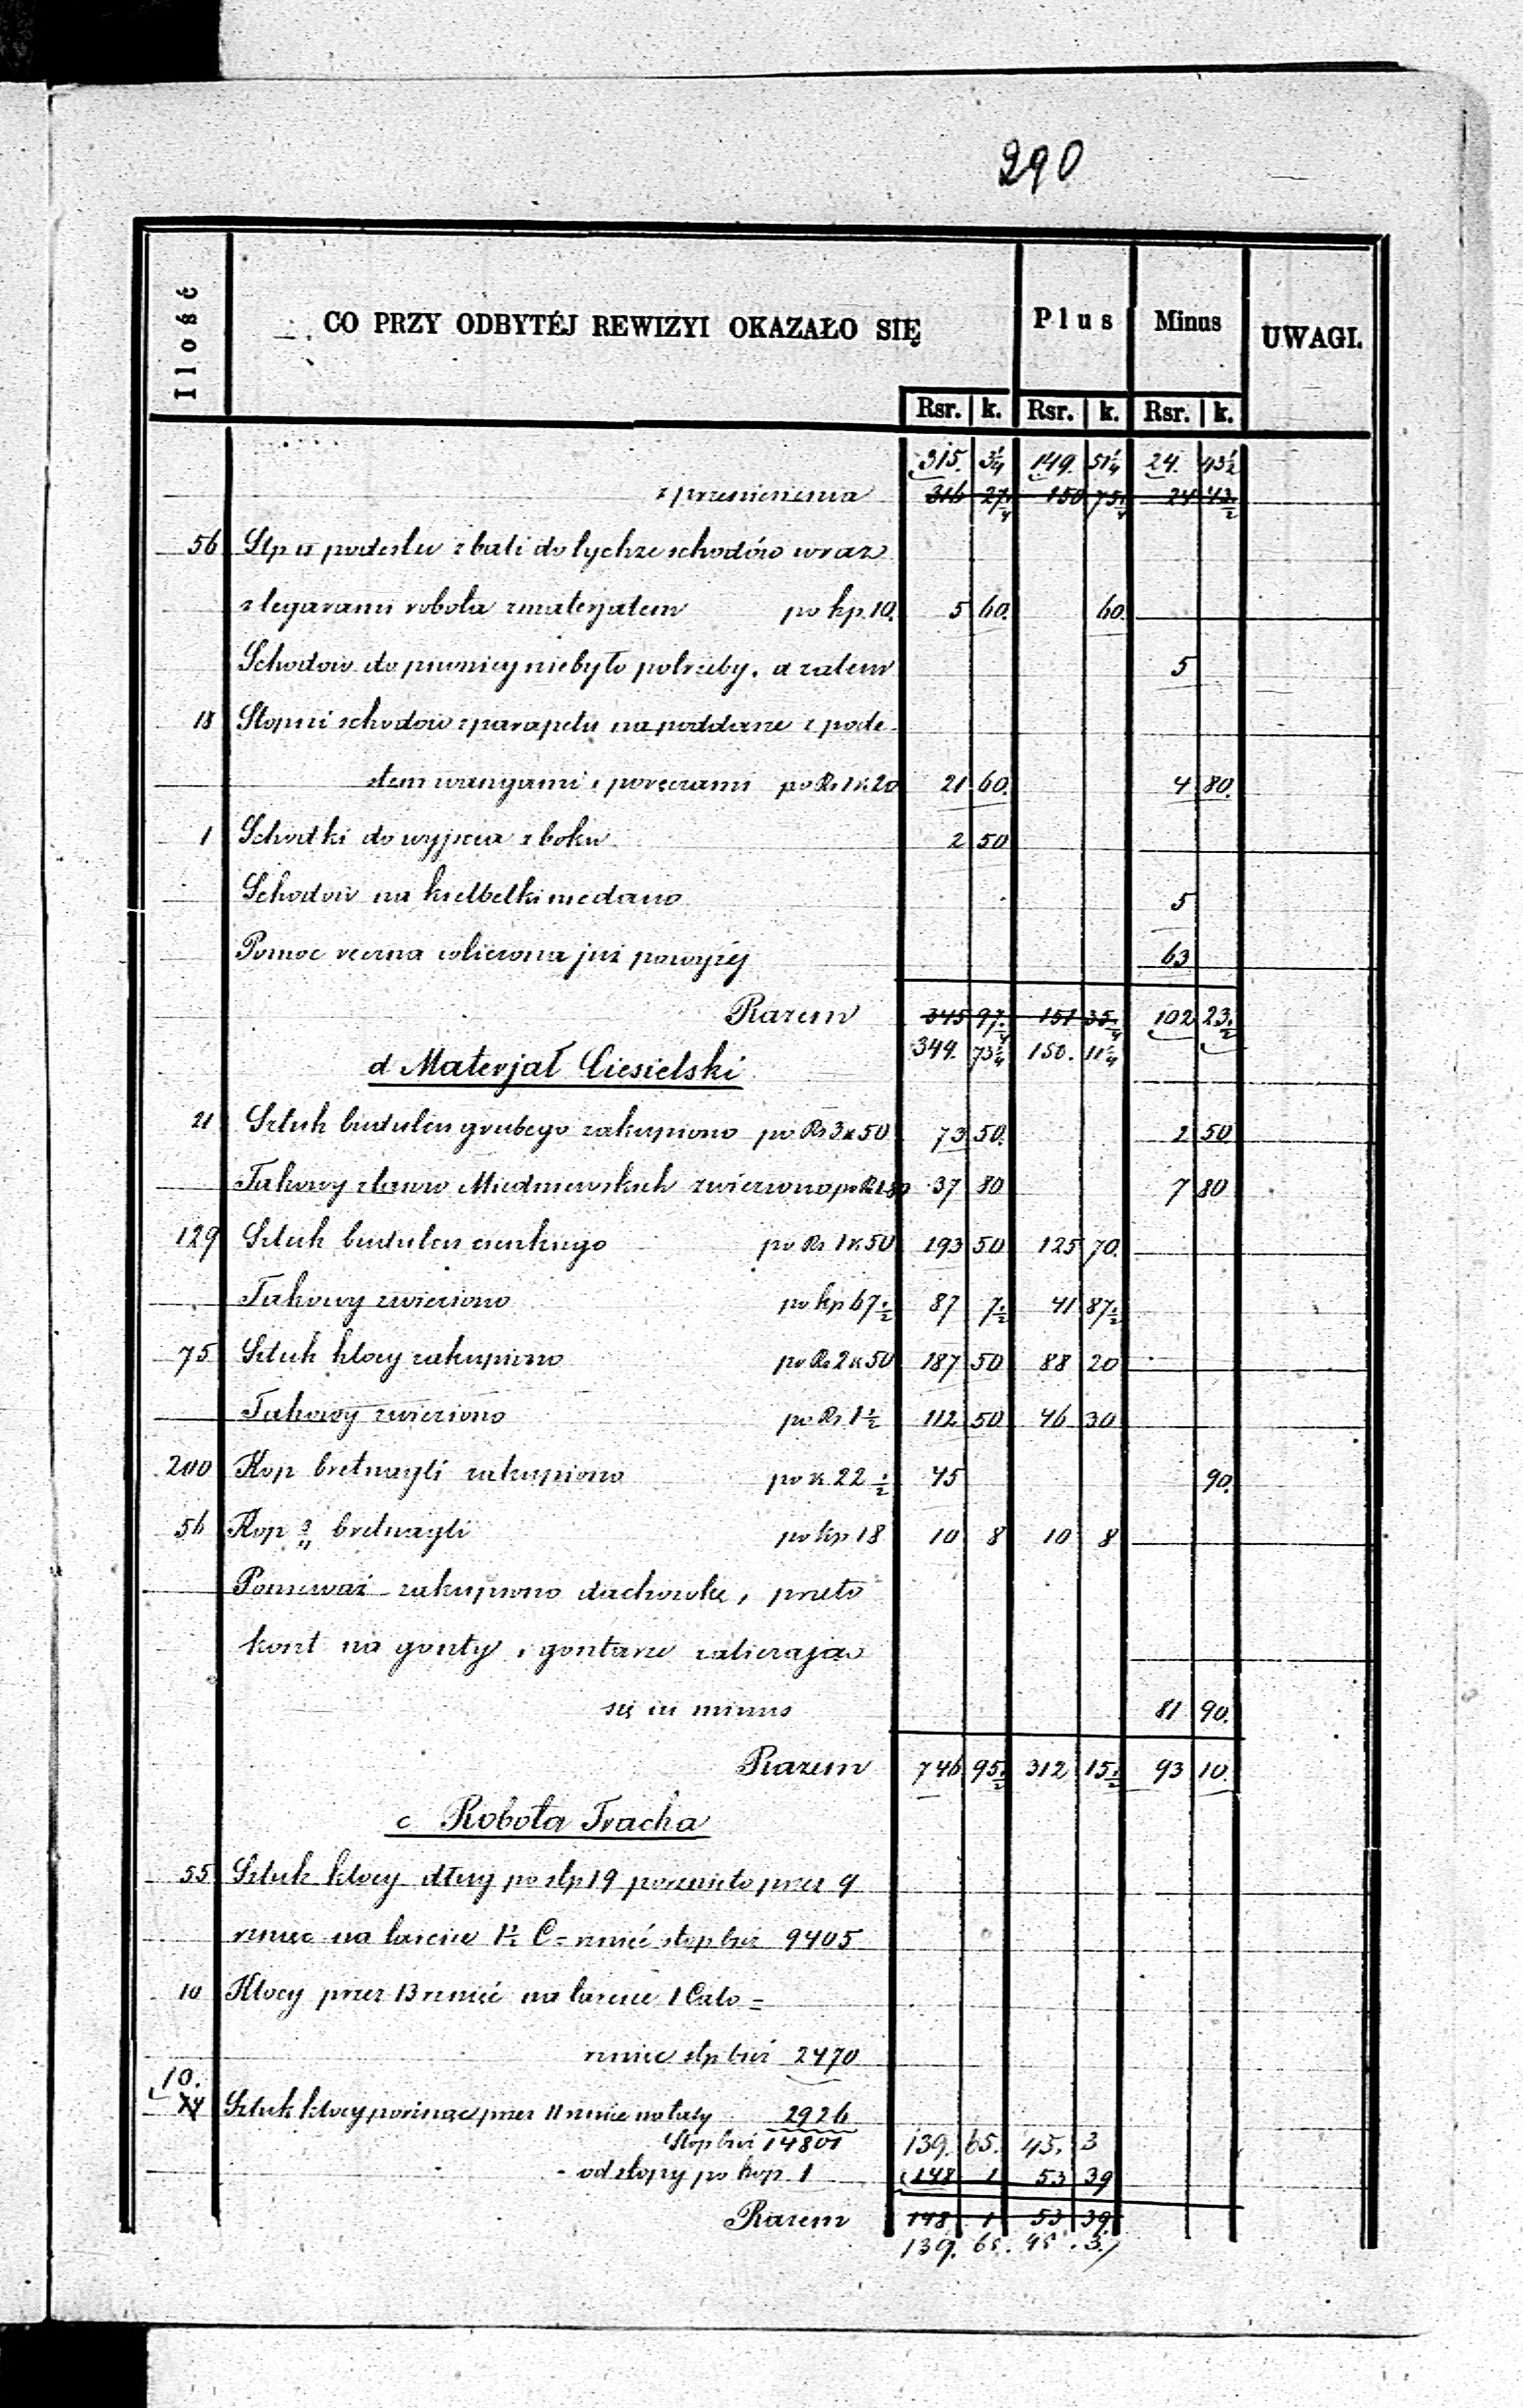 290
Ilość CO PRZY ODBYTÉJ REWIZYI OKAZAŁO SIĘ Plus Minus UWAGI.
Rsr. k. Rsr. k. Rsr. k.
315. 3/4 149. 51 1/4 24. 43 1/2
z przeniesienia 316 27 1/4 150 75 1/4 24 43 1/2
56 Stp □ podestu z bali do tychże schodów wraz
z legarami robota z materjałem po kp. 10. 5 60. 60.
Schodów do piwnicy niebyło potrzeby, a zatem 5
18 Stopni schodów z parapetu na poddasze z pode-
stem wangami i poręczami po Rs 1 k 20 21 60. 4 80.
1 Schodki do wyjścia z boku 2 50
Schodów na kielbelki niedano 5
Pomoc ręczna wliczona już powyżéj 63
Razem 345 97 1/4 151 35 1/4 102 23 1/2
349. 73 1/4 150. 11 1/4
d Materjał Ciesielski
21 Sztuk budulcu grubego zakupiono po Rs 3 k 50 73 50. 2 50
Takowy z lasów Miedniewskich zwieziono po R 1 80 37 80 7 80
129 Sztuk budulcu cienkiego po Rs 1 k 50 193 50 125 70.
Takowy zwieziono po kp 67 1/2 87 7 1/2 41 87 1/2
75 Sztuk klocy zakupiono po Rs 2 k 50 187 50 88 20
Takowy zwieziono po Rs 1 1/2 112 50 46 30
200 Kop bretnagli zakupiono po k 22 1/2 45 90.
56 Kop bretnagli po kp 18 10 8 10 8
Ponieważ zakupiono dachówkę, przeto
koszt na gonty i gontarze zaliczają
się in minus 81 90.
Razem 746 95 1/2 312 15 1/2 93 10.
c Robota Tracha
55 Sztuk klocy dług po stp 19 porznięto przez 9
rznięć na tarcice 1 1/2 C= rznięć stop bież 9405
10 Klocy przez 13 rznięć na tarcice 1 Calo=
rznięć stp bież 2470
10.
14 Sztuk klocy porżnięte przez 11 rznięć na łaty 2926
Stop bież 14801 139. 65. 45. 3
od stopy po kop. 1 148 1 53 39
Razem 148 1 53 39
139. 65. 45. 3.